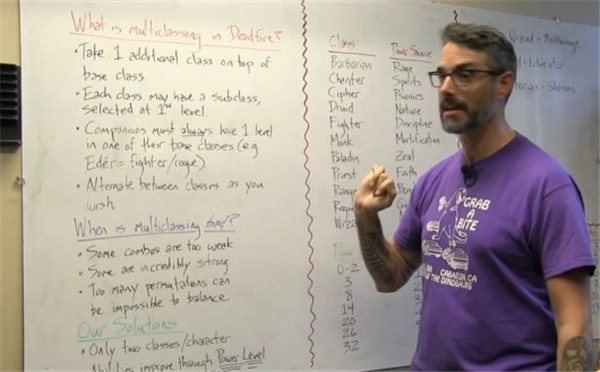 What is multiclassing in Deadfire?
• Take 1 additional class on top of
base class.
• Each class may have a subclass,
selected at 1st level
• Companions must always have 1 level
in one of their base classes (e.g
Edér = fighter/rogue).
• Alternate between classes as you
wish.
When is multiclassing bad?
• Some combos are too weak.
• Some are incredibly strong
• Too many permutations can
be impossible to balance
Our Solutions
• Only two classes/character
improve through Power Level
Class
Barbarian
Chanter
Cipher
Druid
Fighter
Monk
Paladin
Priest
Power Source
Rage
Spirits
Psionics
Nature
Discipline
Mortification
Zeal
Faith
0-2
3
8
14
20
26
32
Wizard = Battlemage
= Liberator
= Shaman
CRAB
A
BITE
CABAZON, CA
OF THE DINOSAURS